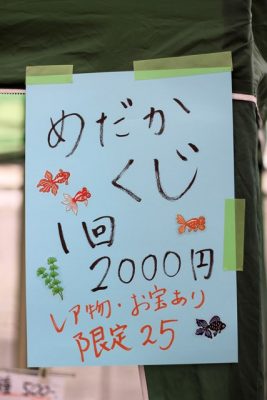 めだか
くじ
1回
2000円
レア物・お宝あり
限定25
500-